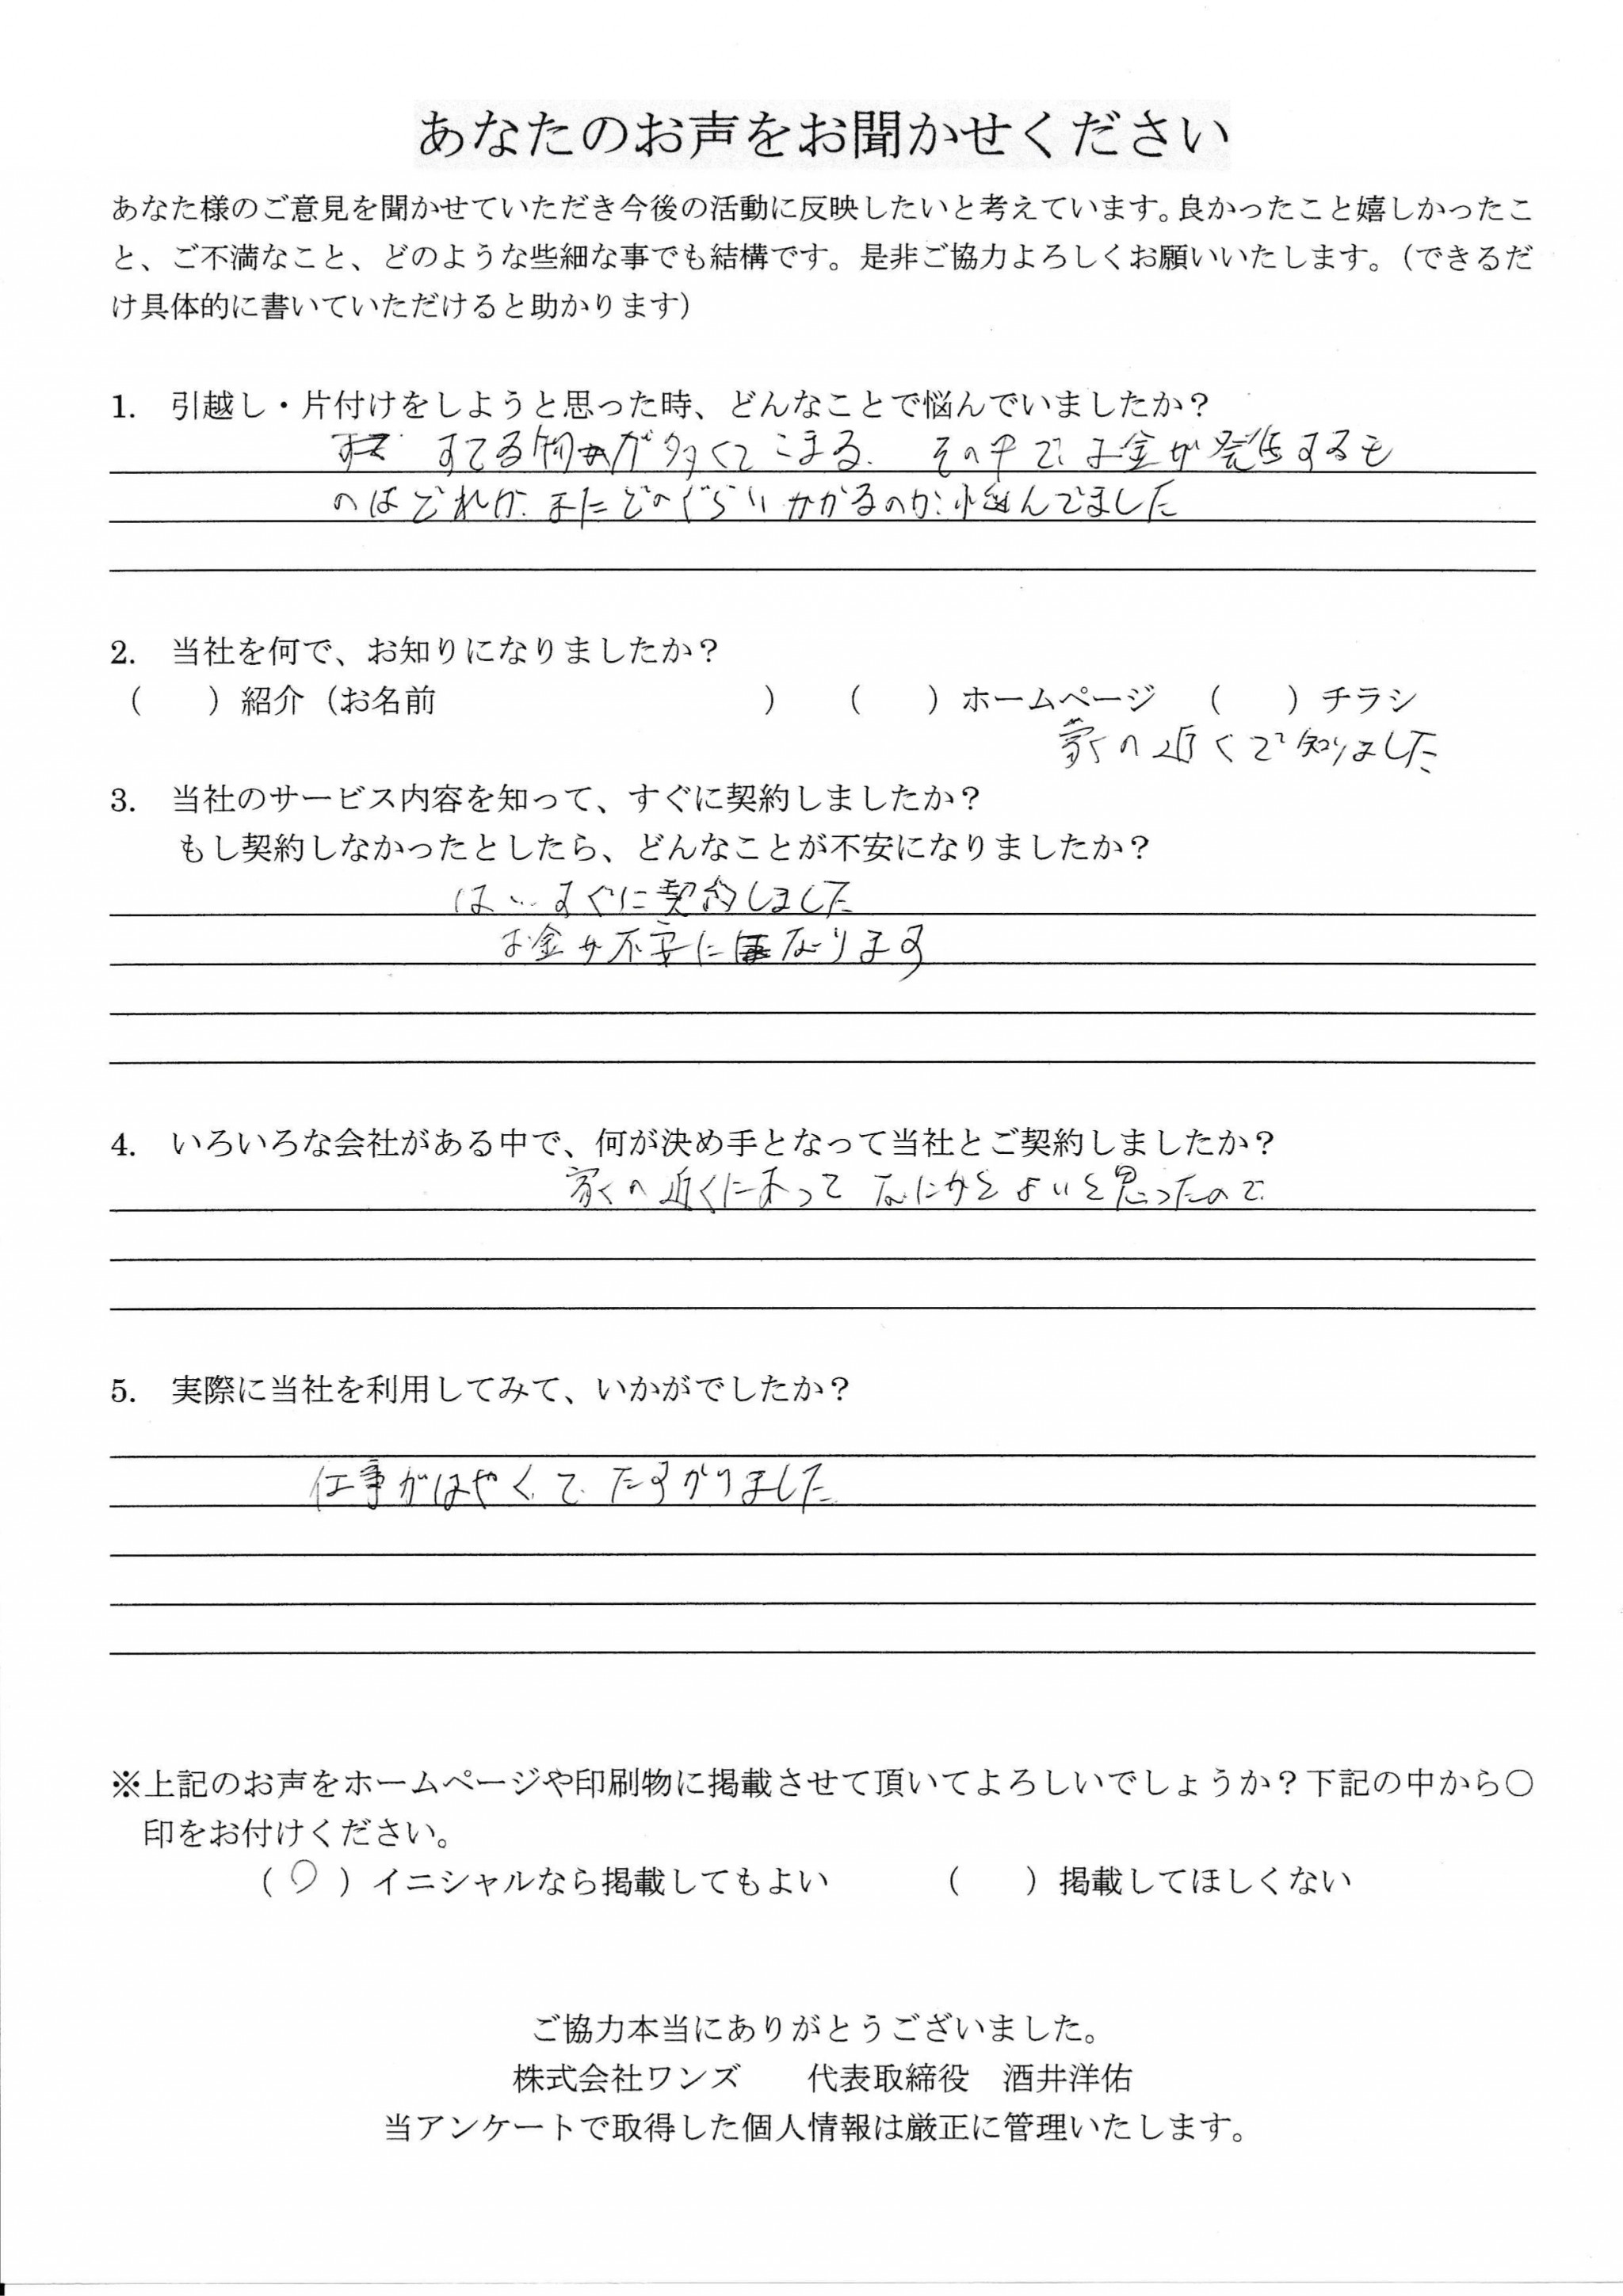 あなたのお声をお聞かせください
あなた様のご意見を聞かせていただき今後の活動に反映したいと考えています。良かったこと嬉しかったこ
と、ご不満なこと、どのような些細な事でも結構です。是非ご協力よろしくお願いいたします。(できるだ
け具体的に書いていただけると助かります)
1. 引越し・片付けをしようと思った時、どんなことで悩んでいましたか?
すてる物が多くてこまる. その中で、お金が発生するも
のはどれか、またどのぐらいかかるのか、悩んでました
2. 当社を何で、お知りになりましたか?
( )紹介(お名前 ) ( )ホームページ ( )チラシ
家の近くで知りました
3. 当社のサービス内容を知って、すぐに契約しましたか?
もし契約しなかったとしたら、どんなことが不安になりましたか?
はい、すぐに契約しました
お金が不安になります
4. いろいろな会社がある中で、何が決め手となって当社とご契約しましたか?
家の近くにあって なにかと よいと思ったので
5. 実際に当社を利用してみて、いかがでしたか?
仕事がはやくて たすかりました
※上記のお声をホームページや印刷物に掲載させて頂いてよろしいでしょうか?下記の中から○
印をお付けください。
(○)イニシャルなら掲載してもよい ( )掲載してほしくない
ご協力本当にありがとうございました。
株式会社ワンズ 代表取締役 酒井洋佑
当アンケートで取得した個人情報は厳正に管理いたします。